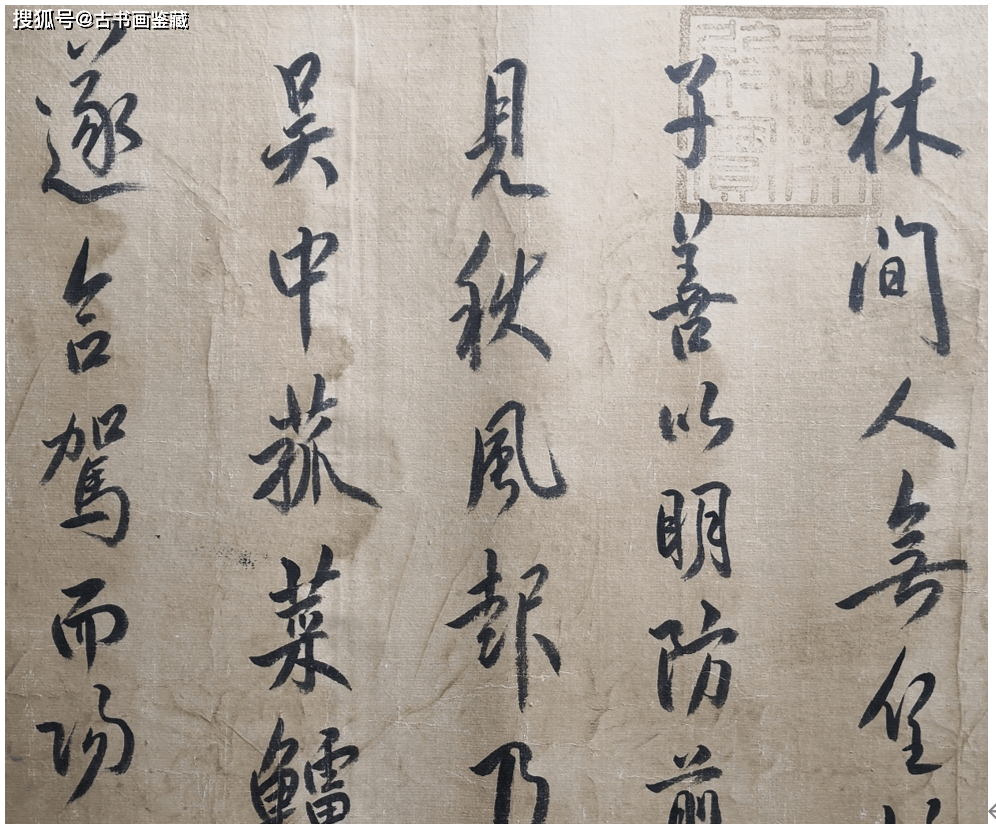 搜狐号@古书画鉴藏
林間人無
子善以明防前
見秋風乃
吳中菰菜鱸
遂命駕而